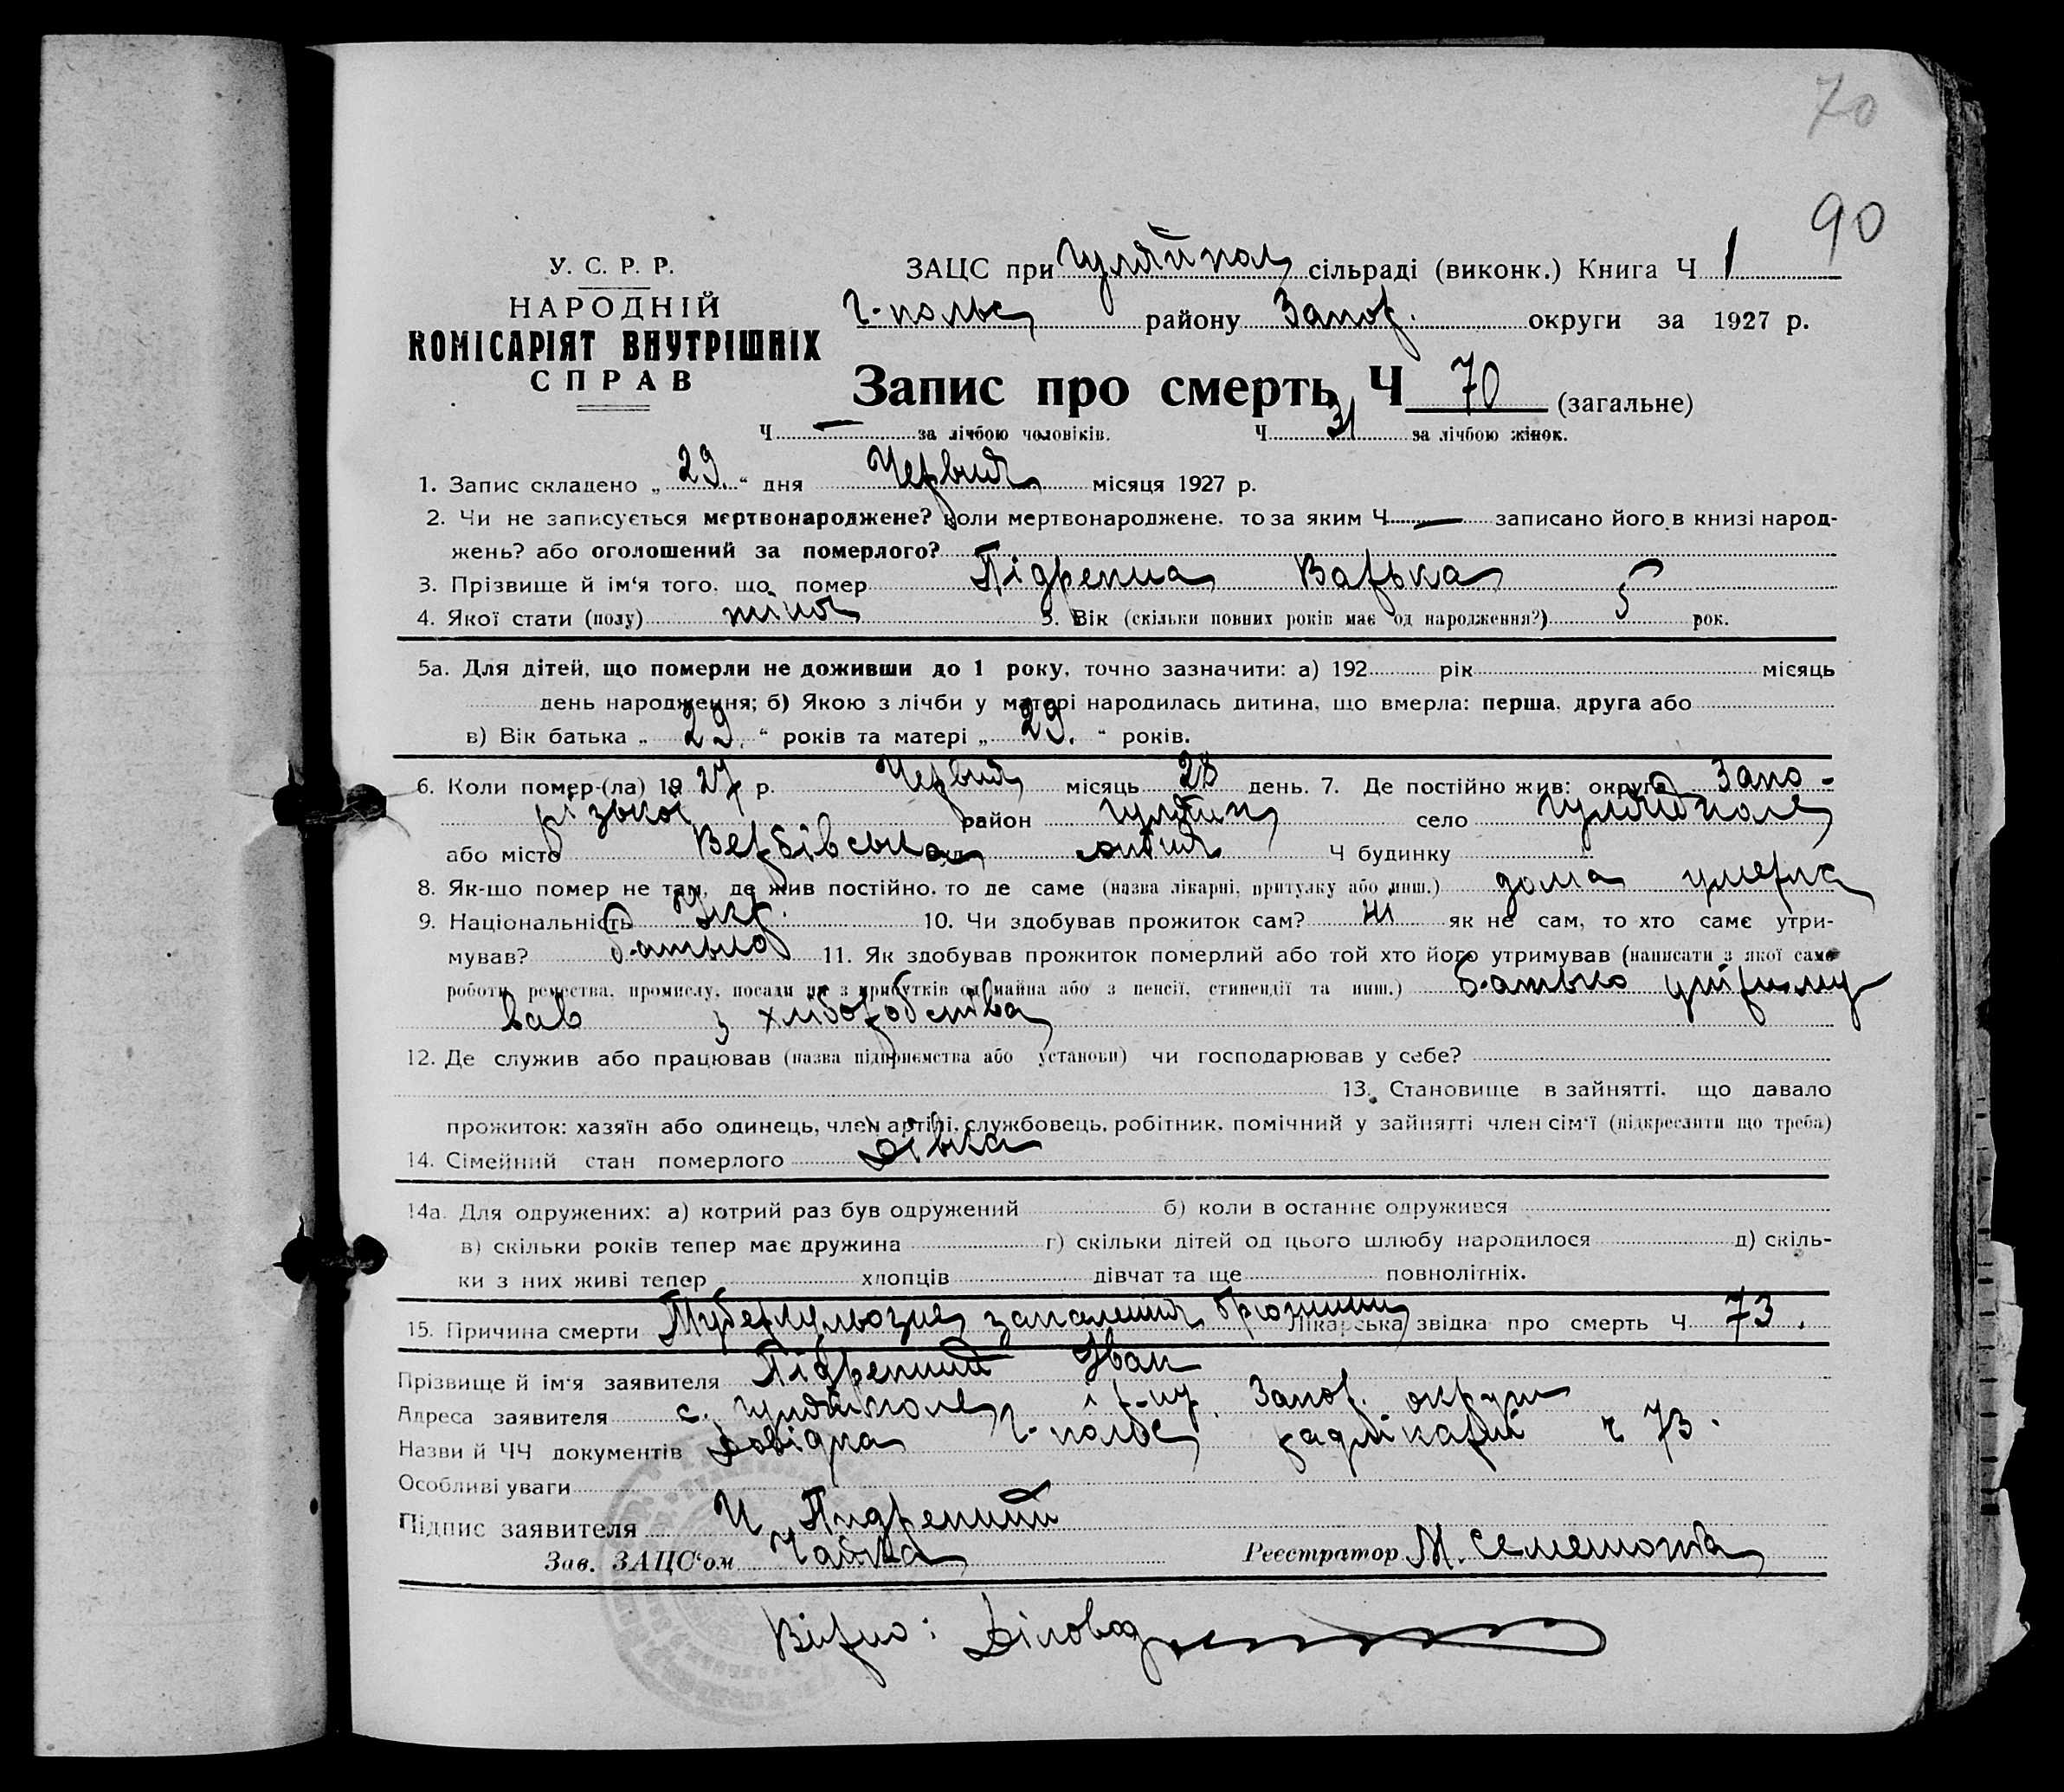 70
90
У. С. Р. Р.
НАРОДНІЙ
КОМІСАРІЯТ ВНУТРІШНІХ
СПРАВ
ЗАЦС при Гуляйпол сільраді (виконк.) Книга Ч 1
Г-польс району Запор. округи за 1927 р.
Запис про смерть Ч 70 (загальне)
Ч — за лічбою чоловіків. Ч 31 за лічбою жінок.
1. Запис складено „ 29. “ дня Червня місяця 1927 р.
2. Чи не записується мертвонароджене? Коли мертвонароджене, то за яким Ч — записано його в книзі народ-
жень? або оголошений за померлого?
3. Прізвище й ім'я того, що помер Підрепна Варька
4. Якої стати (полу) жіноч 5. Вік (скільки повних років має од народження?) 5 рок.
5а. Для дітей, що померли не доживши до 1 року, точно зазначити: а) 192 рік місяць
день народження; б) Якою з лічби у матері народилась дитина, що вмерла: перша, друга або
в) Вік батька „ 29. “ років та матері „ 29. “ років.
6. Коли помер-(ла) 19 27 р. Червня місяць 28 день. 7. Де постійно жив: округа Запо-
різької район Гуляйп село Гуляйполе
або місто Вербівська сотня Ч будинку
8. Як-що помер не там, де жив постійно, то де саме (назва лікарні, притулку або инш.) дома умерла
9. Національність Укр. 10. Чи здобував прожиток сам? ні як не сам, то хто саме утри-
мував? батько 11. Як здобував прожиток померлий або той хто його утримував (написати з якої саме
роботи, ремества, промислу, посади чи з прибутків од майна або з пенсії, стипендії та инш.) батько утриму
вав з хліборобства
12. Де служив або працював (назва підприємства або установи) чи господарював у себе?
13. Становище в зайнятті, що давало
прожиток: хазяїн або одинець, член артілі, службовець, робітник, помічний у зайнятті член сім'ї (підкреслити що треба)
14. Сімейний стан померлого Дівка
14а. Для одружених: а) котрий раз був одружений б) коли в останнє одружився
в) скільки років тепер має дружина г) скільки дітей од цього шлюбу народилося д) скіль-
ки з них живі тепер хлопців дівчат та ще повнолітніх.
15. Причина смерти Туберкульозне запалення Лікарська звідка про смерть Ч 73.
Прізвище й ім'я заявителя Підрепний Іван
Адреса заявителя с. Гуляйполе р-ну Запор. округи
Назви й ЧЧ документів Довідка Г-польс райлікарні ч 73.
Особливі уваги
Підпис заявителя И Пидрепний
Зав. ЗАЦС'ом Чайка Реєстратор М. Семенюта
Вірно: Діловод